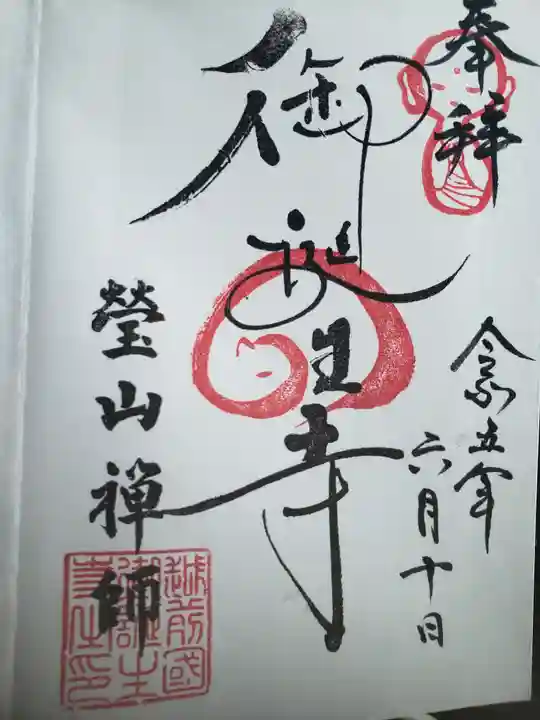 奉拝
令和五年
六月十日
御誕生寺
瑩山禅師
越前國
御誕生
寺住印